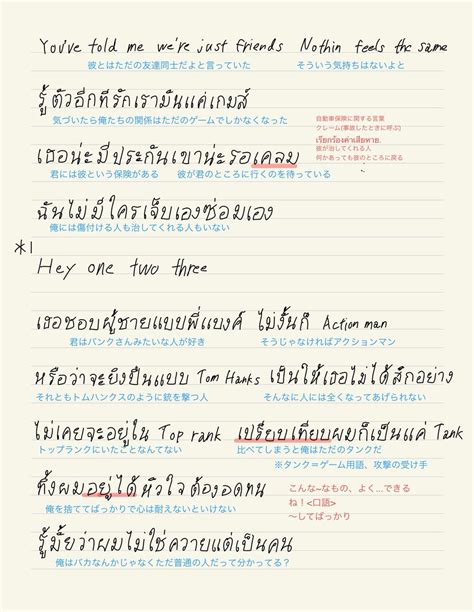 You've told me we're just friends Nothin feels the same
彼とはただの友達同士だよと言っていた そういう気持ちはないよと
รู้ตัวอีกทีรักเรามันแค่เกมส์
気づいたら俺たちの関係はただのゲームでしかなくなった
自動車保険に関する言葉
クレーム(事故したときに呼ぶ)
เธอน่ะมีประกันเขาน่ะรอเคลม
เรียกร้องค่าเสียหาย.
彼が治してくれる人
何かあっても彼のところに戻る
君には彼という保険がある 彼が君のところに行くのを待っている
ฉันไม่มีใครเจ็บเองซ่อมเอง
俺には傷付ける人も治してくれる人もいない
*1
Hey one two three
เธอชอบผู้ชายแบบพี่แบงค์ ไม่งั้นก็ Action man
君はバンクさんみたいな人が好き そうじゃなければアクションマン
หรือว่าจะยิงปืนแบบ Tom Hanks เป็นให้เธอไม่ได้สักอย่าง
それともトムハンクスのように銃を撃つ人 そんなに人には全くなってあげられない
ไม่เคยจะอยู่ใน Top rank เปรียบเทียบผมก็เป็นแค่ Tank
トップランクにいたことなんてない 比べてしまうと俺はただのタンクだ
※タンク＝ゲーム用語、攻撃の受け手
ทิ้งผมอยู่ได้หัวใจต้องอดทน
こんな~なもの、よく…できる
ね！<口語>
〜してばっかり
俺を捨ててばっかりで心は耐えないといけない
รู้มั้ยว่าผมไม่ใช่ควายแต่เป็นคน
俺はバカなんかじゃなくただ普通の人だって分かってる？